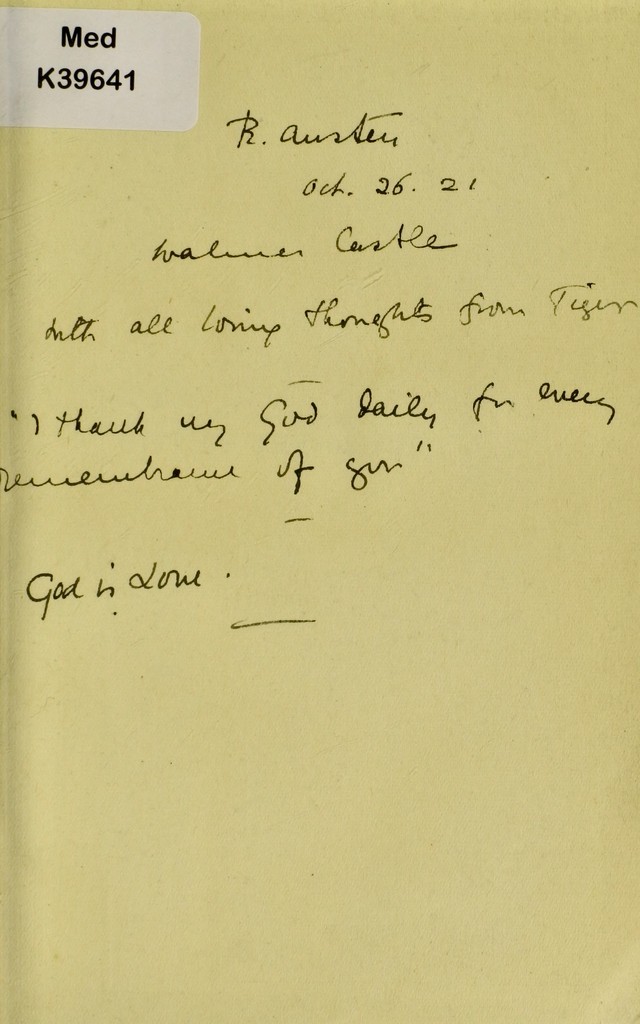 Med
K39641
R. Austen
Oct. 26. 21
Walmer Castle
With all loving thoughts from Tiger
"I thank my God daily for every
remembrance of you"
God is Love.